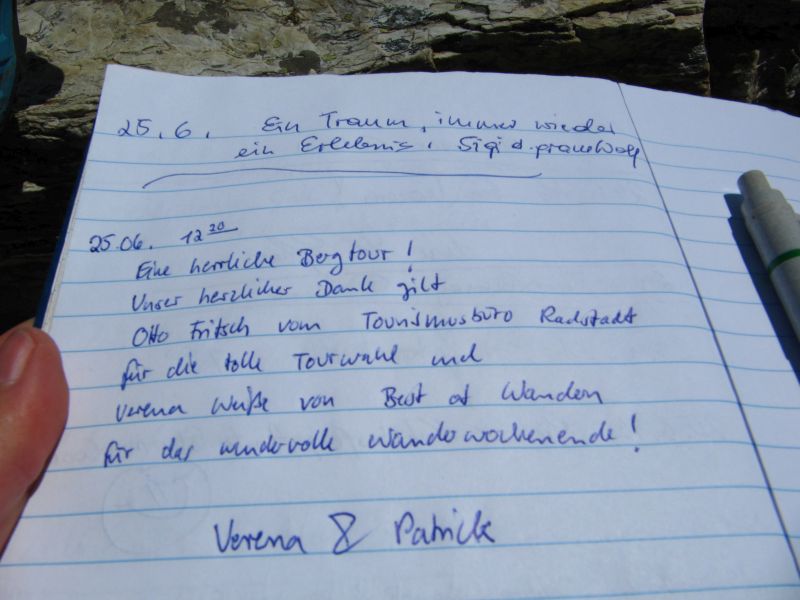 25.6. Ein Traum, immer wieder
ein Erlebnis,
25.06. 12 20
Eine herrliche Bergtour!
Unser herzlicher Dank gilt
Otto Fritsch vom Tourismusbüro Radstadt
für die tolle Tourwahl und
Verena Weiße von Best of Wandern
für das wundervolle Wanderwochenende!
Verena & Patrick